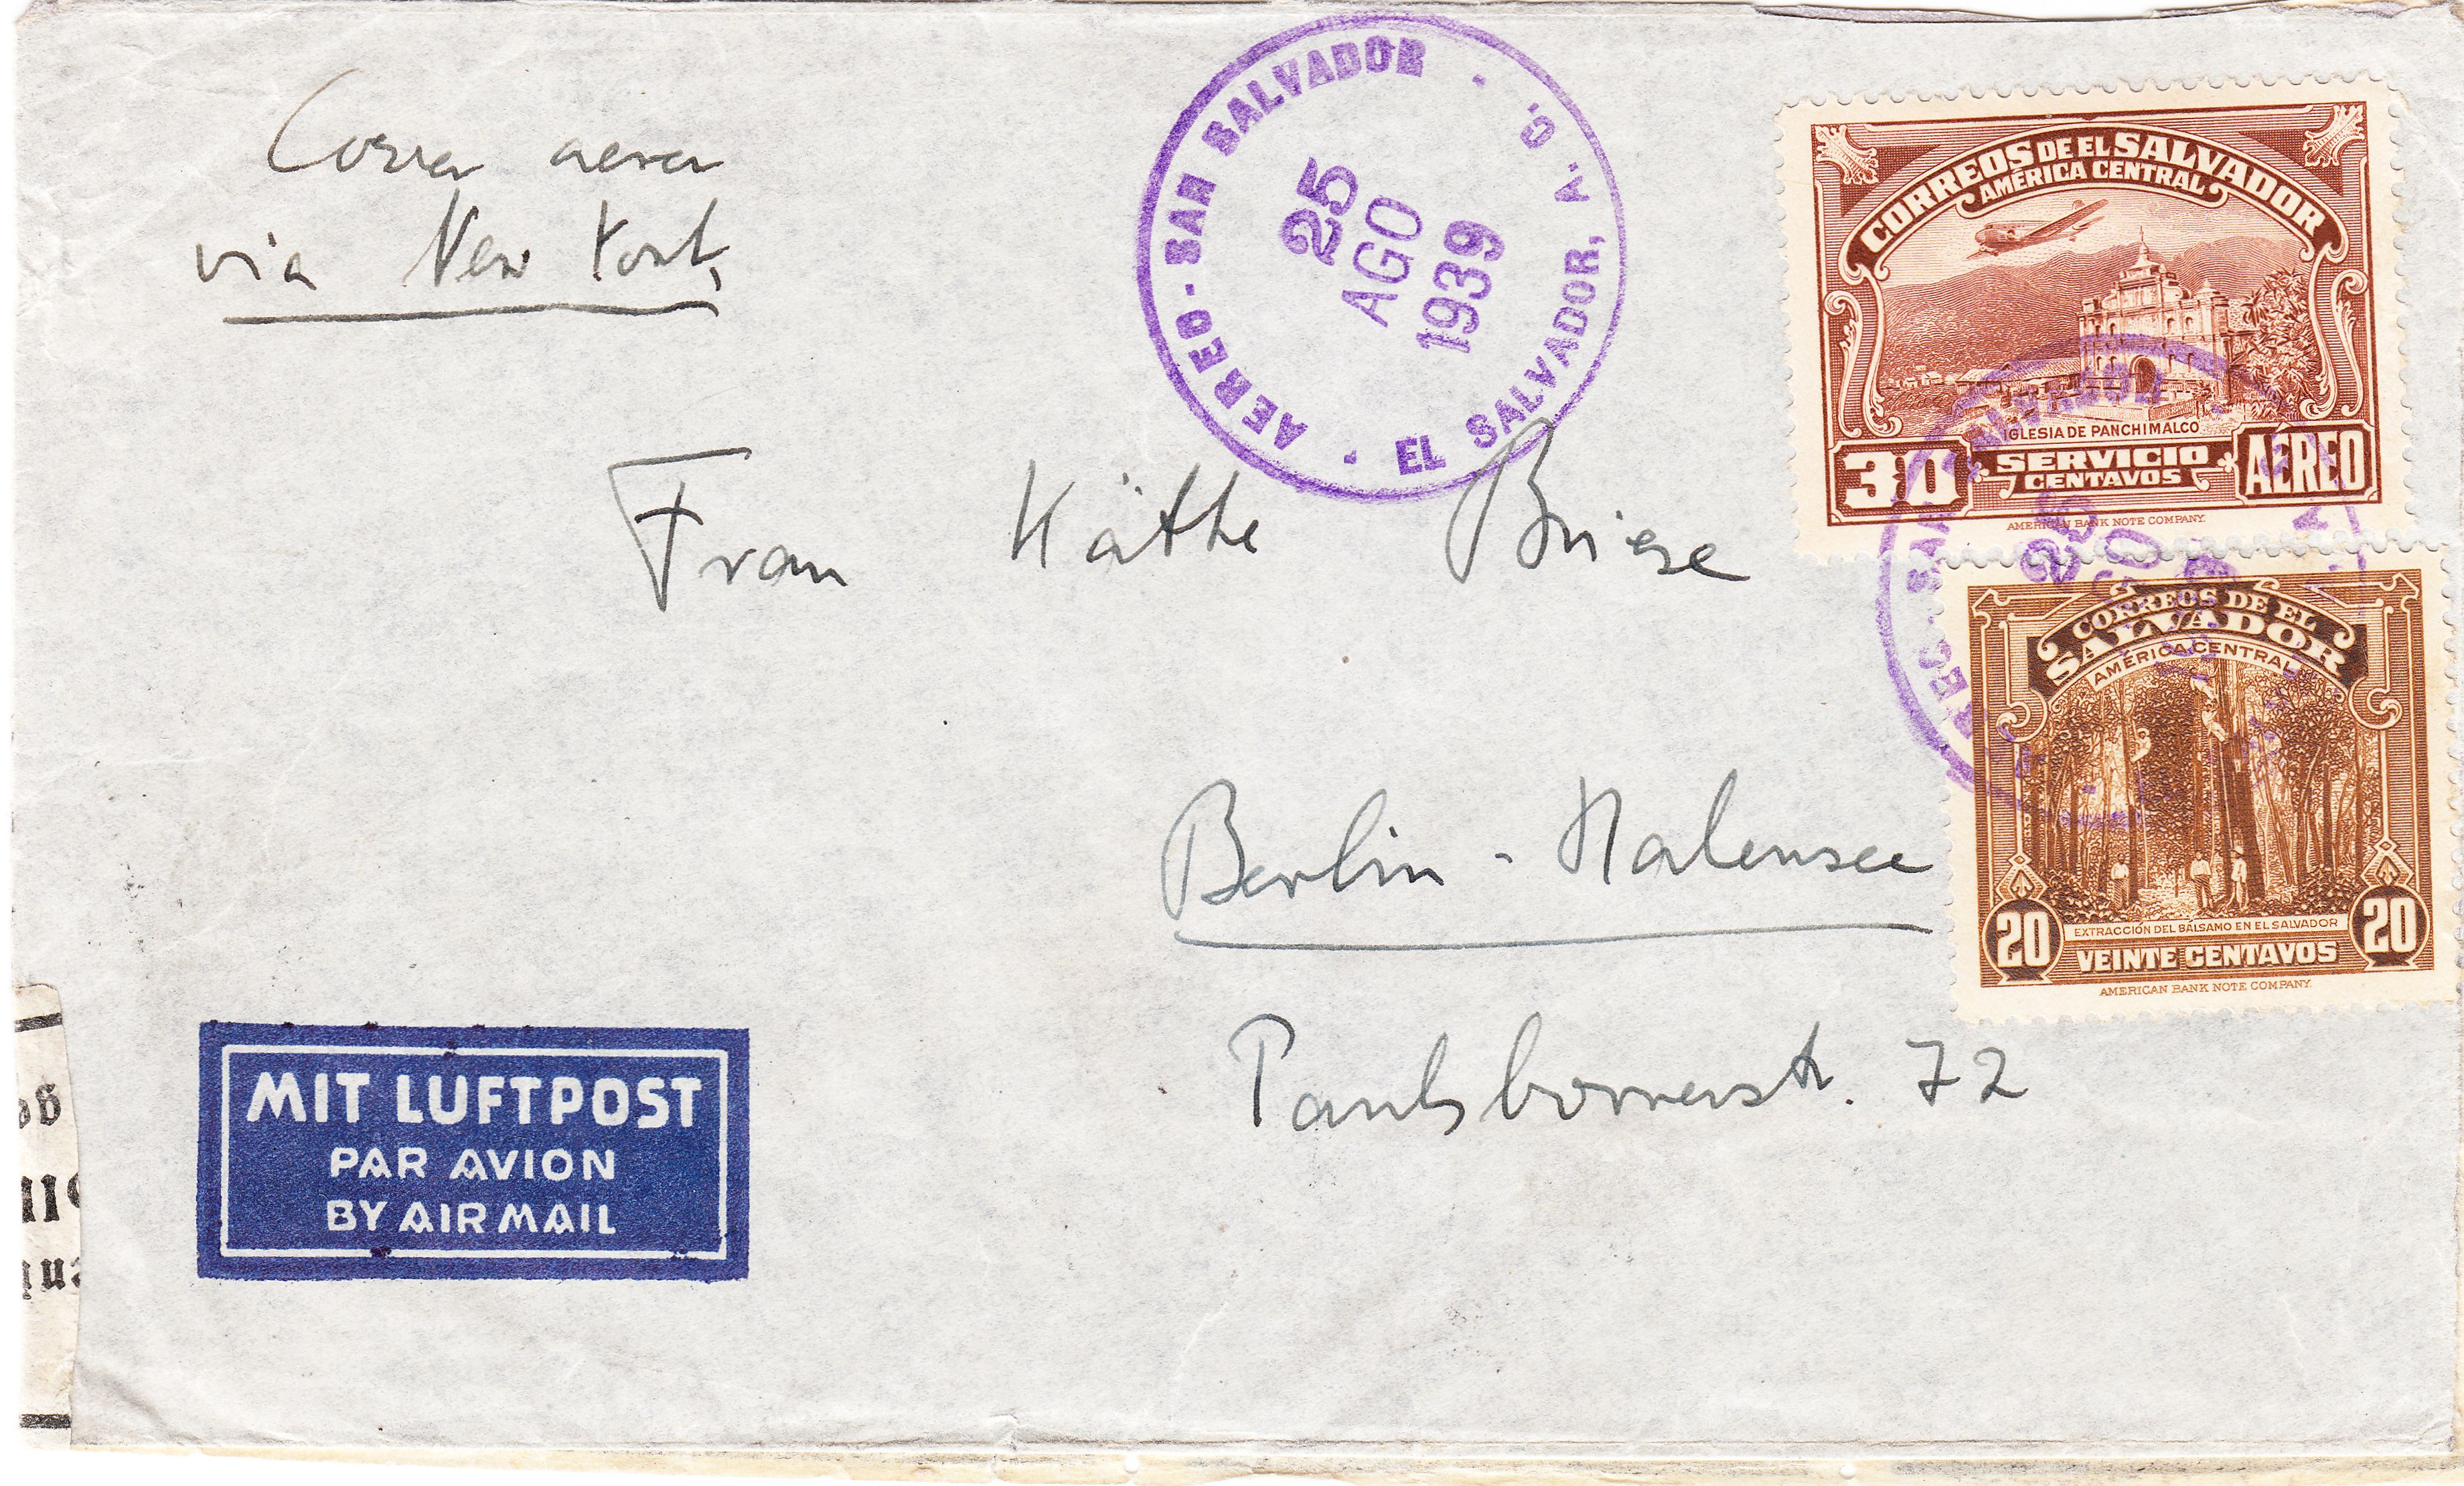 Correo aereo
via New York
AEREO · SAN SALVADOR · EL SALVADOR, A. C.
25
AGO
1939
CORREOS DE EL SALVADOR
AMÉRICA CENTRAL
IGLESIA DE PANCHIMALCO
30 SERVICIO AÉREO
CENTAVOS
AMERICAN BANK NOTE COMPANY.
Frau Käthe Briese
CORREOS DE EL
SALVADOR
AMÉRICA CENTRAL
EXTRACCIÓN DEL BÁLSAMO EN EL SALVADOR
20 VEINTE CENTAVOS 20
AMERICAN BANK NOTE COMPANY.
25
Berlin - Halensee
Paulsbornerstr. 72
MIT LUFTPOST
PAR AVION
BY AIR MAIL